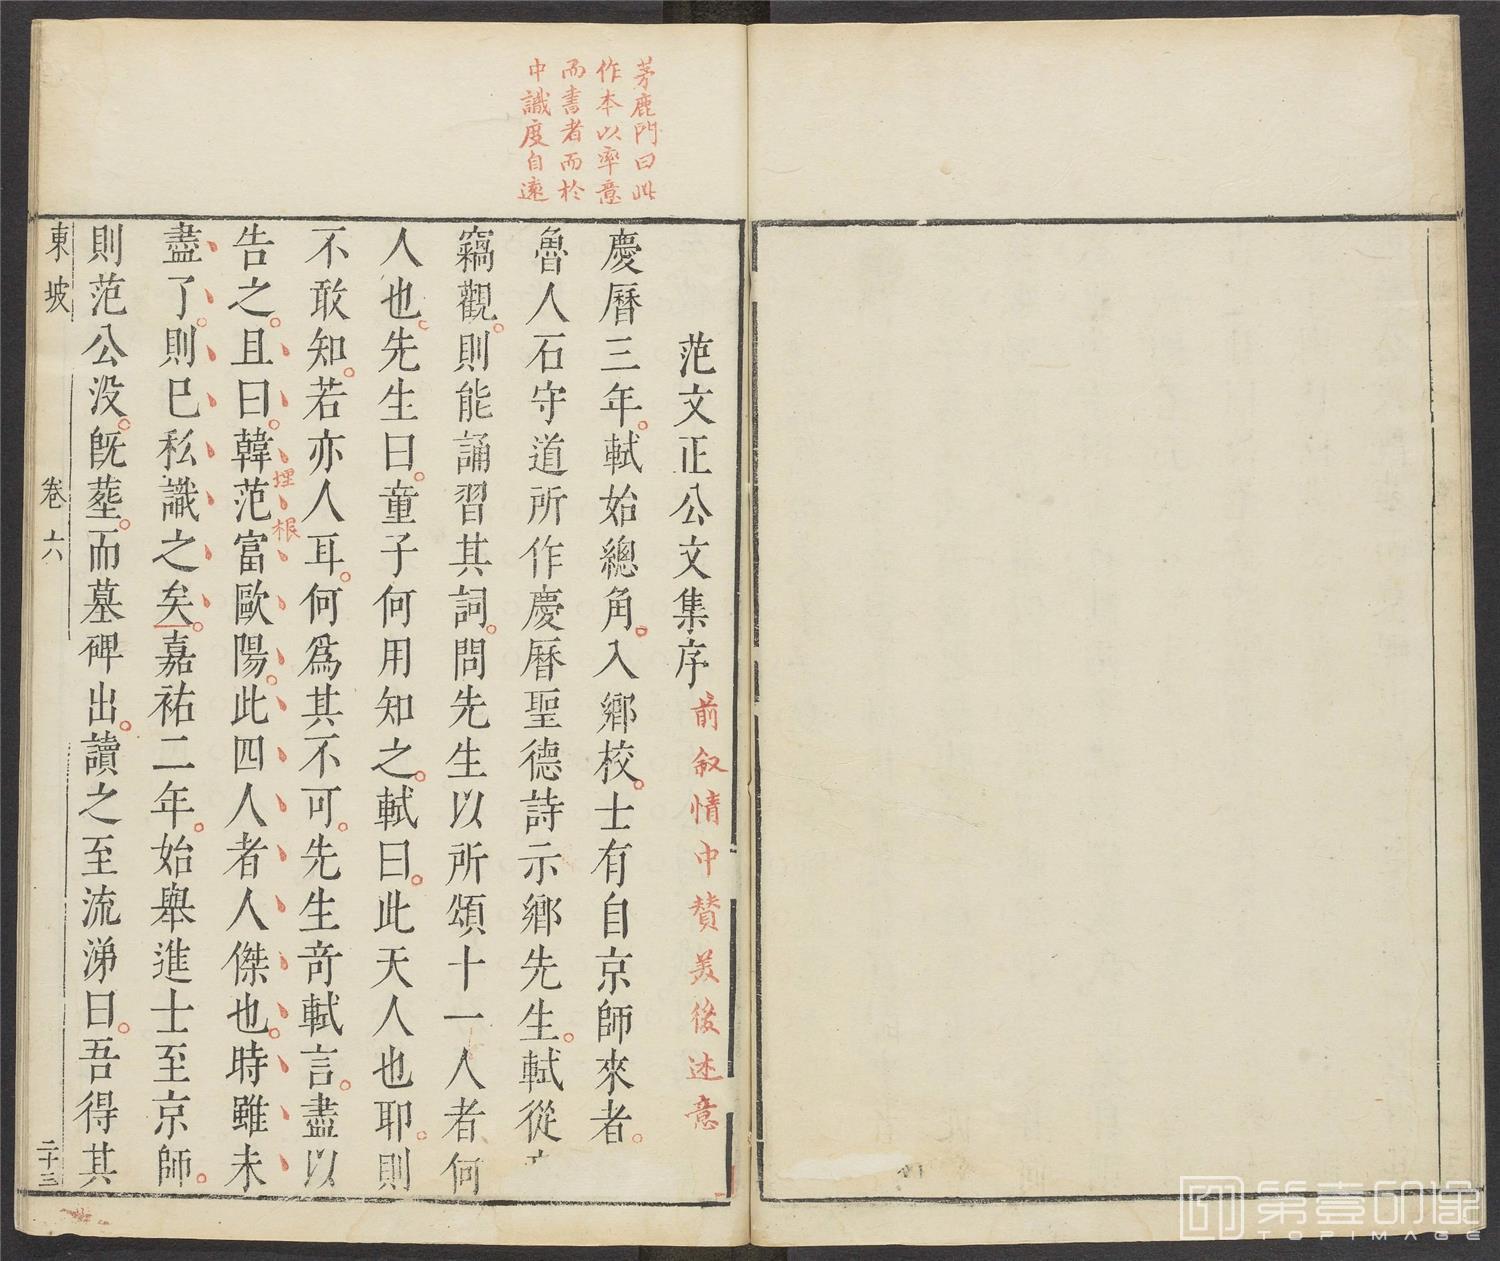 茅鹿門曰此
作本以率意
而書者而於
中識度自遠
范文正公文集序
前叙情中贊美後述意
慶曆三年。軾始總角。入鄉校。士有自京師來者。
魯人石守道所作慶曆聖德詩示鄉先生。軾從
竊觀。則能誦習其詞。問先生以所頌十一人者何
人也。先生曰。童子何用知之。軾曰。此天人也耶。則
不敢知。若亦人耳。何爲其不可。先生奇軾言。盡以
埋根
告之。且曰。韓范富歐陽。此四人者人傑也。時雖未
盡了。則已私識之矣。嘉祐二年。始舉進士至京師。
則范公没。旣塟。而墓碑出。讀之至流涕曰。吾得其
東坡 卷六 二十三
第壹印象
TOPIMAGE